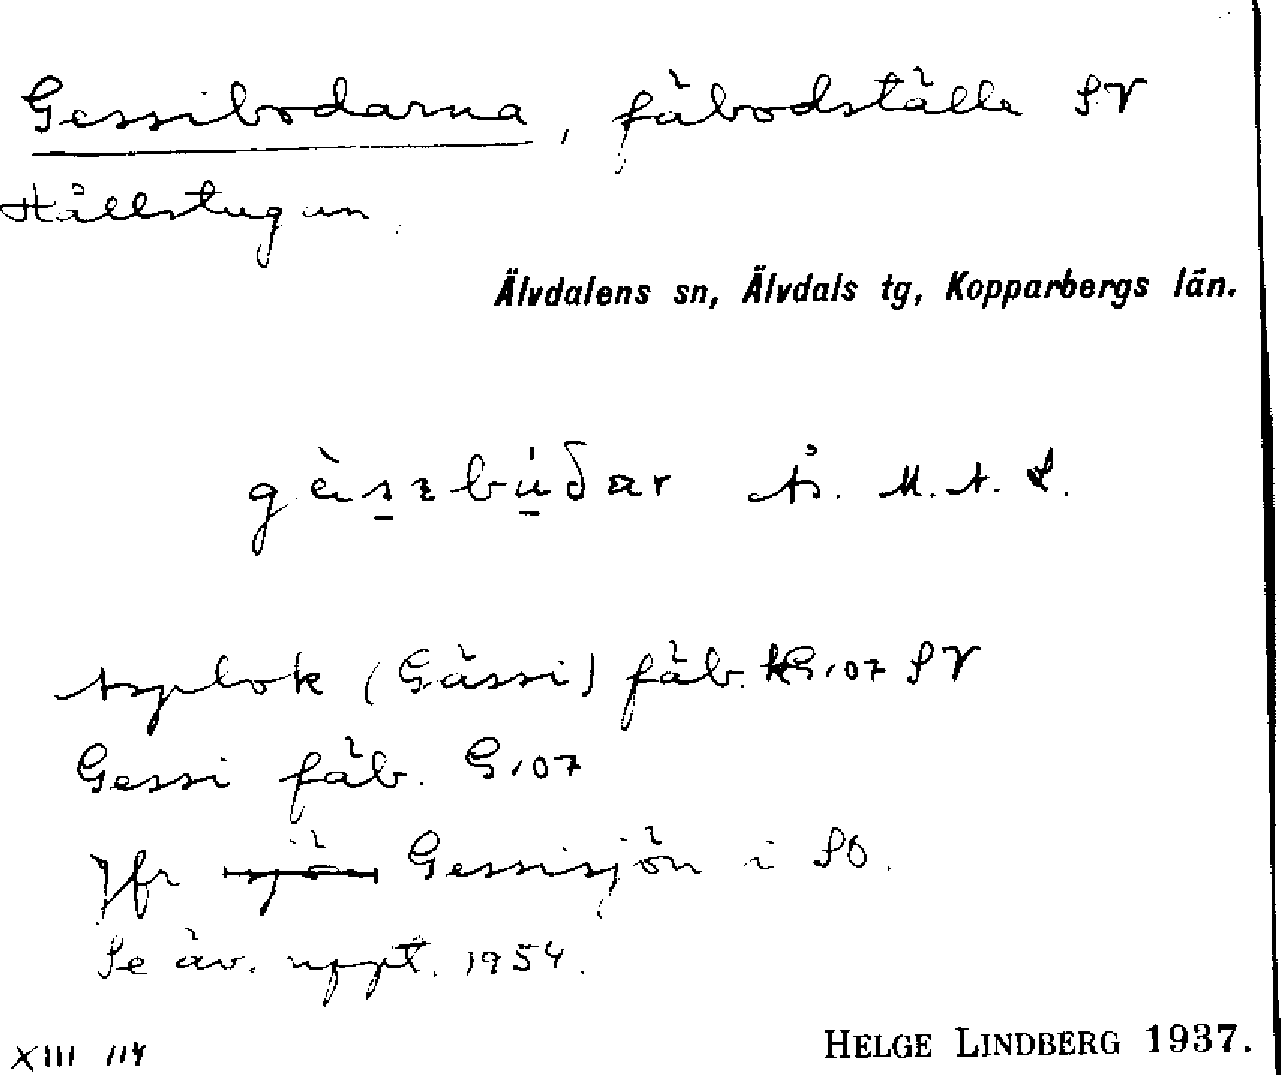 Gessibodarna, fäbodställe SV
Hållstugan.
Älvdalens sn, Älvdals tg, Kopparbergs län.
Ås. M. A. L.
(Gässi) fäb. KG107 SV
Gessi fäb. G107
Jfr Gessisjön i SO.
Se äv. uppt. 1954.
XIII 114
HELGE LINDBERG 1937.